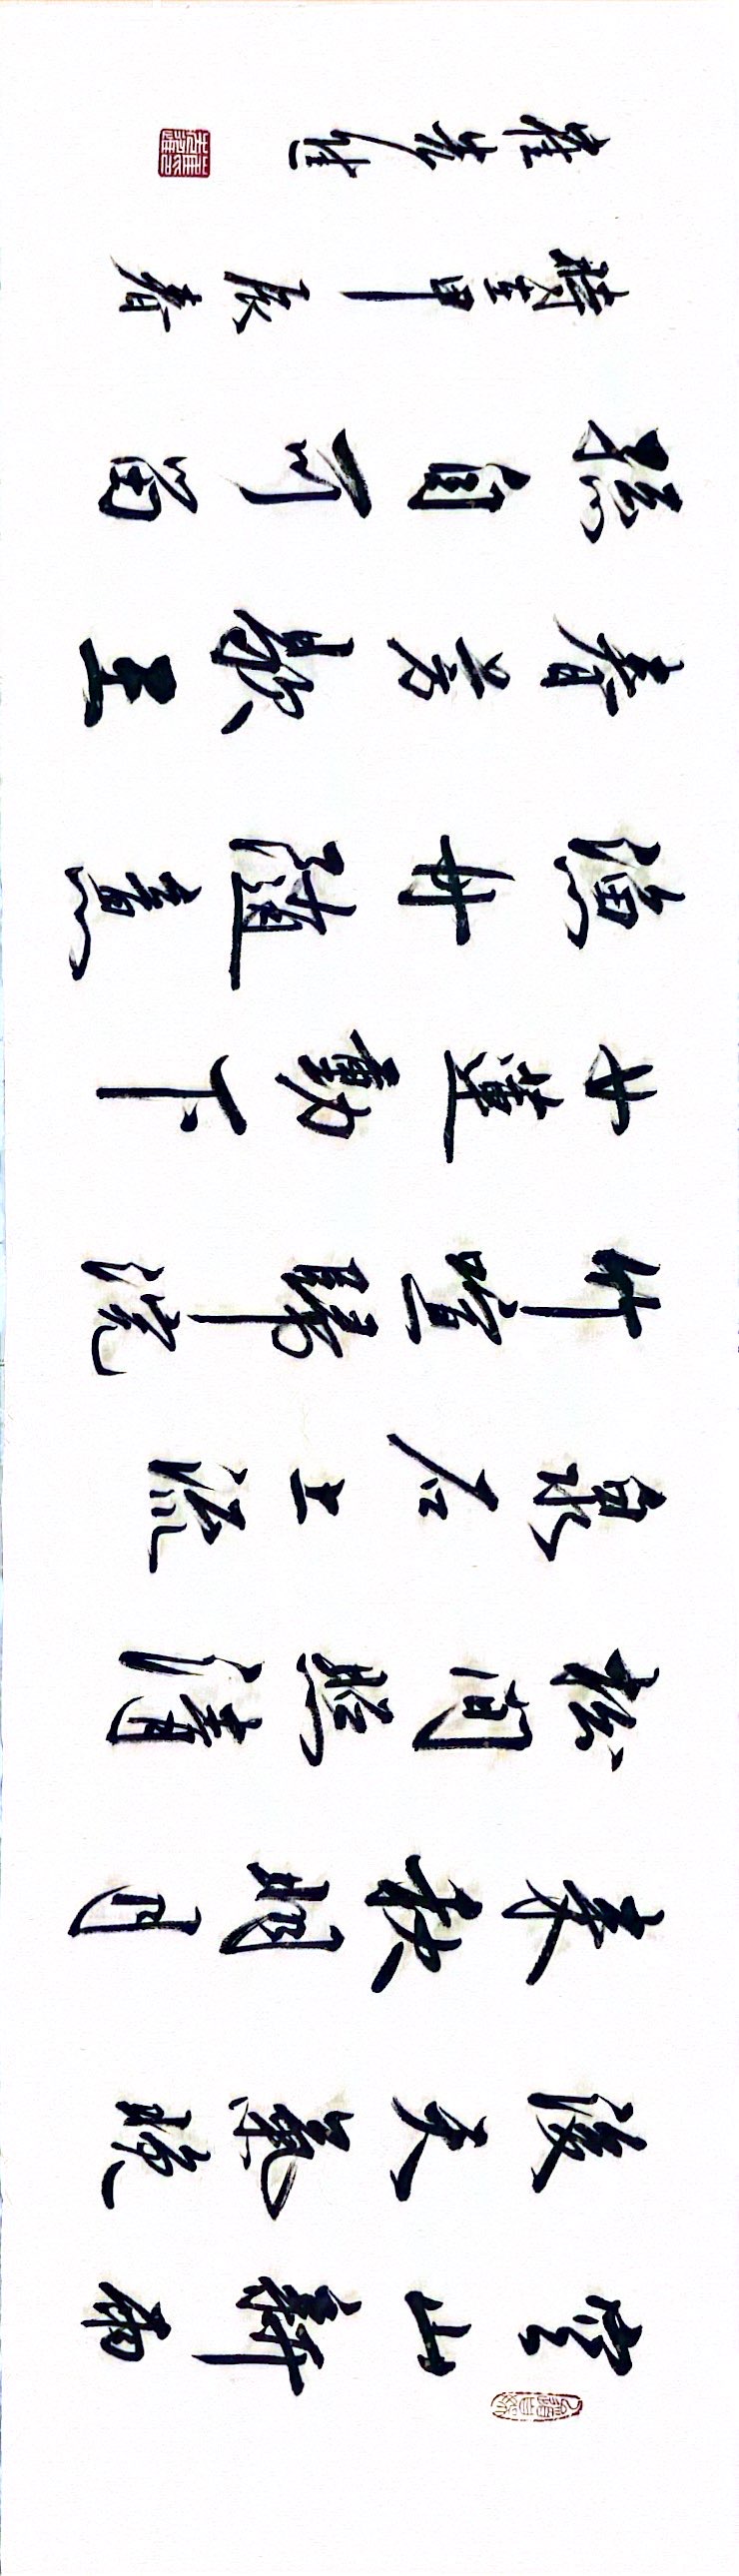 空山新雨
後天氣晚
来秋明月
松間照清
泉石上流
竹喧歸浣
女蓮動下
漁舟随意
春芳歇王
孫自可留
時在甲辰春
崔先進
崔印先進